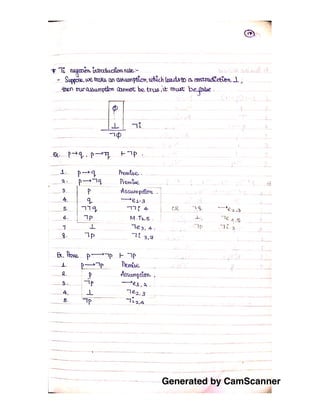 * ¬i negation introduction rule :-
- Suppose we make an assumption which leads to a contradiction ⊥,
then our assumption cannot be true, it must be false.
φ
⊥ ¬i
¬φ
Ex. p→q, p→¬q ⊢ ¬p.
1. p→q Premise.
2. p→¬q Premise
3. p Assumption
4. q →e1,3
5. ¬¬q ¬¬i 4 OR ¬q →e2,3
6. ¬p M.T2,5. ⊥ ¬e4,5
7 ⊥ ¬e3,6. ¬p ¬i 3
8. ¬p ¬i 3,7
Ex. Prove p→¬p ⊢ ¬p
1. p→¬p Premise
2. p Assumption.
3. ¬p →e1,2.
4. ⊥ ¬e2,3
5. ¬p ¬i2,4
Generated by CamScanner